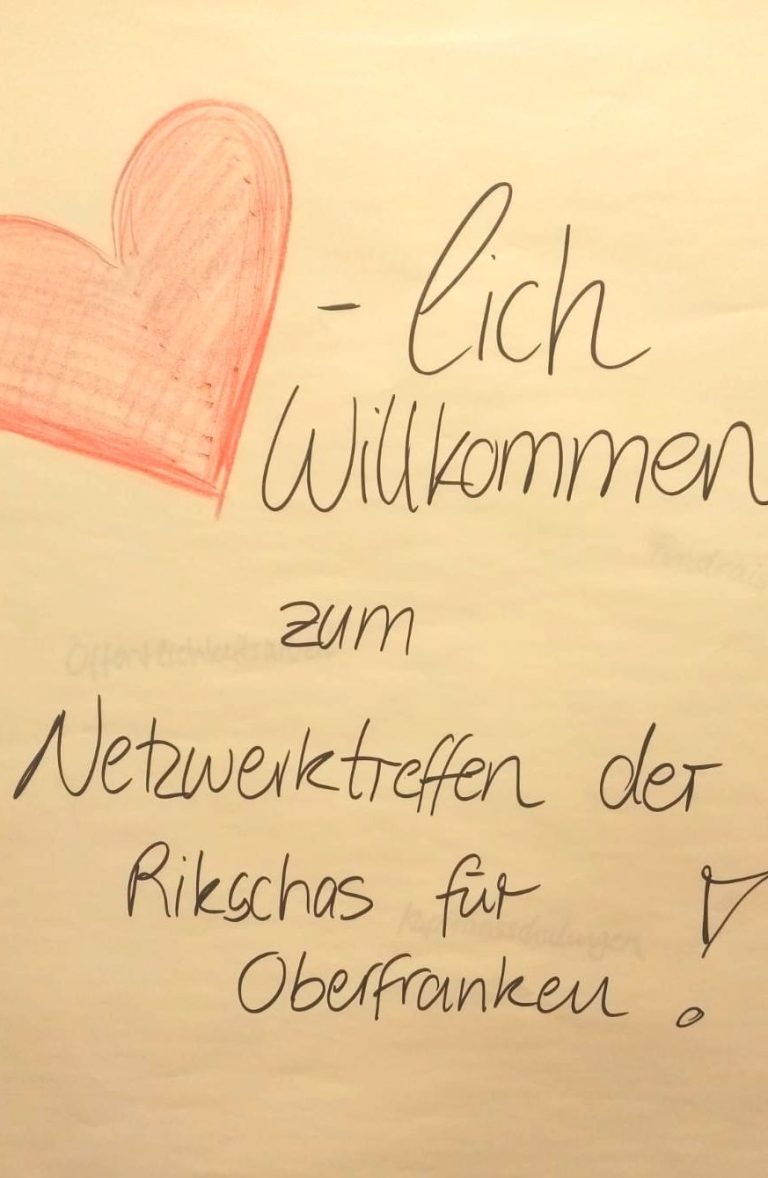 - lich
Willkommen
zum
Netzwerktreffen der
Rikschas für
Oberfranken !